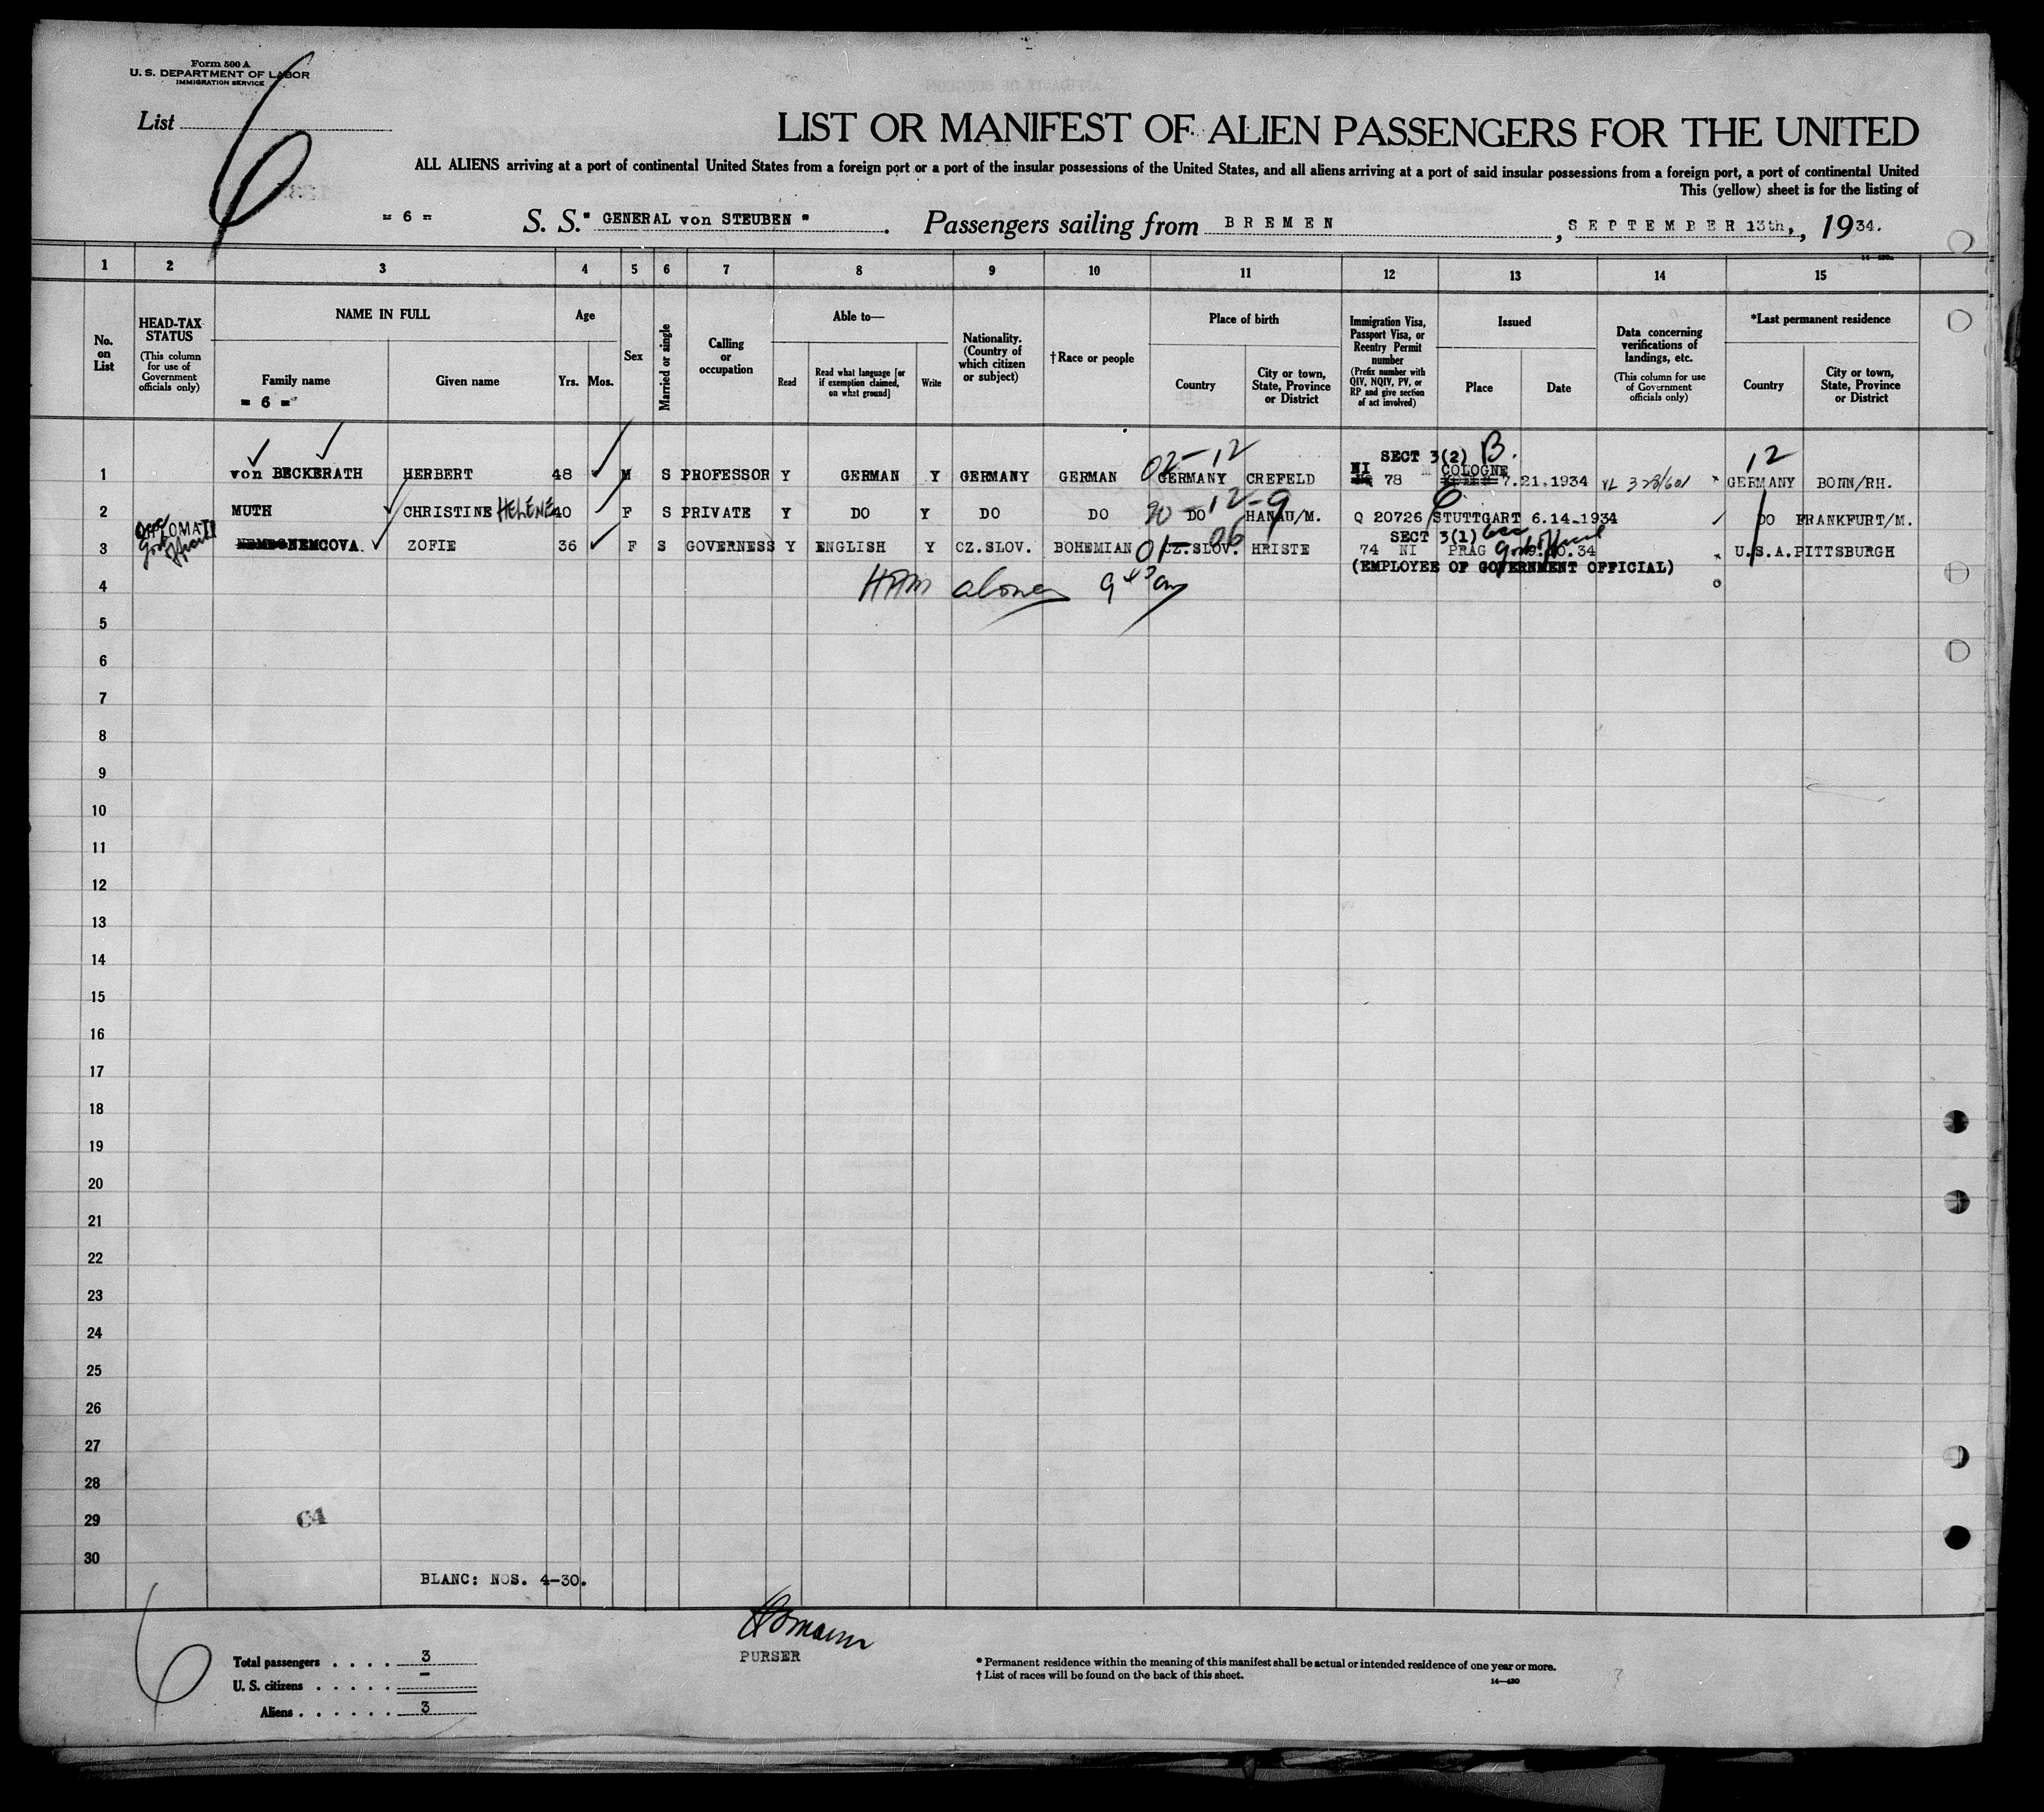 Form 500 A
U. S. DEPARTMENT OF LABOR
IMMIGRATION SERVICE
List
6
LIST OR MANIFEST OF ALIEN PASSENGERS FOR THE UNITED
ALL ALIENS arriving at a port of continental United States from a foreign port or a port of the insular possessions of the United States, and all aliens arriving at a port of said insular possessions from a foreign port, a port of continental United
This (yellow) sheet is for the listing of
= 6 = S. S. " GENERAL von STEUBEN " . Passengers sailing from BREMEN , SEPTEMBER 13th, , 1934.
14—430
1 2 3 4 5 6 7 8 9 10 11 12 13 14 15
No. on List
HEAD-TAX STATUS (This column for use of Government officials only)
NAME IN FULL
Family name
= 6 =
Given name
Age
Yrs. Mos.
Sex
Married or single
Calling or occupation
Able to—
Read
Read what language [or if exemption claimed, on what ground]
Write
Nationality. (Country of which citizen or subject)
†Race or people
Place of birth
Country
City or town, State, Province or District
Immigration Visa, Passport Visa, or Reentry Permit number (Prefix number with QIV, NQIV, PV, or RP and give section of act involved)
Issued
Place
Date
Data concerning verifications of landings, etc. (This column for use of Government officials only)
*Last permanent residence
Country
City or town, State, Province or District
02-12 SECT 3(2) B. 12
1 von BECKERATH HERBERT 48 M S PROFESSOR Y GERMAN Y GERMANY GERMAN GERMANY CREFELD NI 78 COLOGNE 7.21.1934 VL 328/601 GERMANY BONN/RH.
2 MUTH CHRISTINE HELENE 40 F S PRIVATE Y DO Y DO DO 20-12-9 DO HANAU/M. Q 20726 STUTTGART 6.14.1934 DO FRANKFURT/M.
DIPLOMAT
Gov official
SECT 3(1) Gov official
3 NEMCOVA. ZOFIE 36 F S GOVERNESS Y ENGLISH Y CZ.SLOV. BOHEMIAN 01-06 CZ.SLOV. HRISTE 74 NI PRAG U.S.A. PITTSBURGH
(EMPLOYEE OF GOVERNMENT OFFICIAL)
4
5
6
7
8
9
10
11
12
13
14
15
16
17
18
19
20
21
22
23
24
25
26
27
28
29
30
C4
BLANC: NOS. 4-30.
6
PURSER
Total passengers . . . . 3
U. S. citizens . . . . . –
Aliens . . . . . . 3
* Permanent residence within the meaning of this manifest shall be actual or intended residence of one year or more.
† List of races will be found on the back of this sheet.
14—430